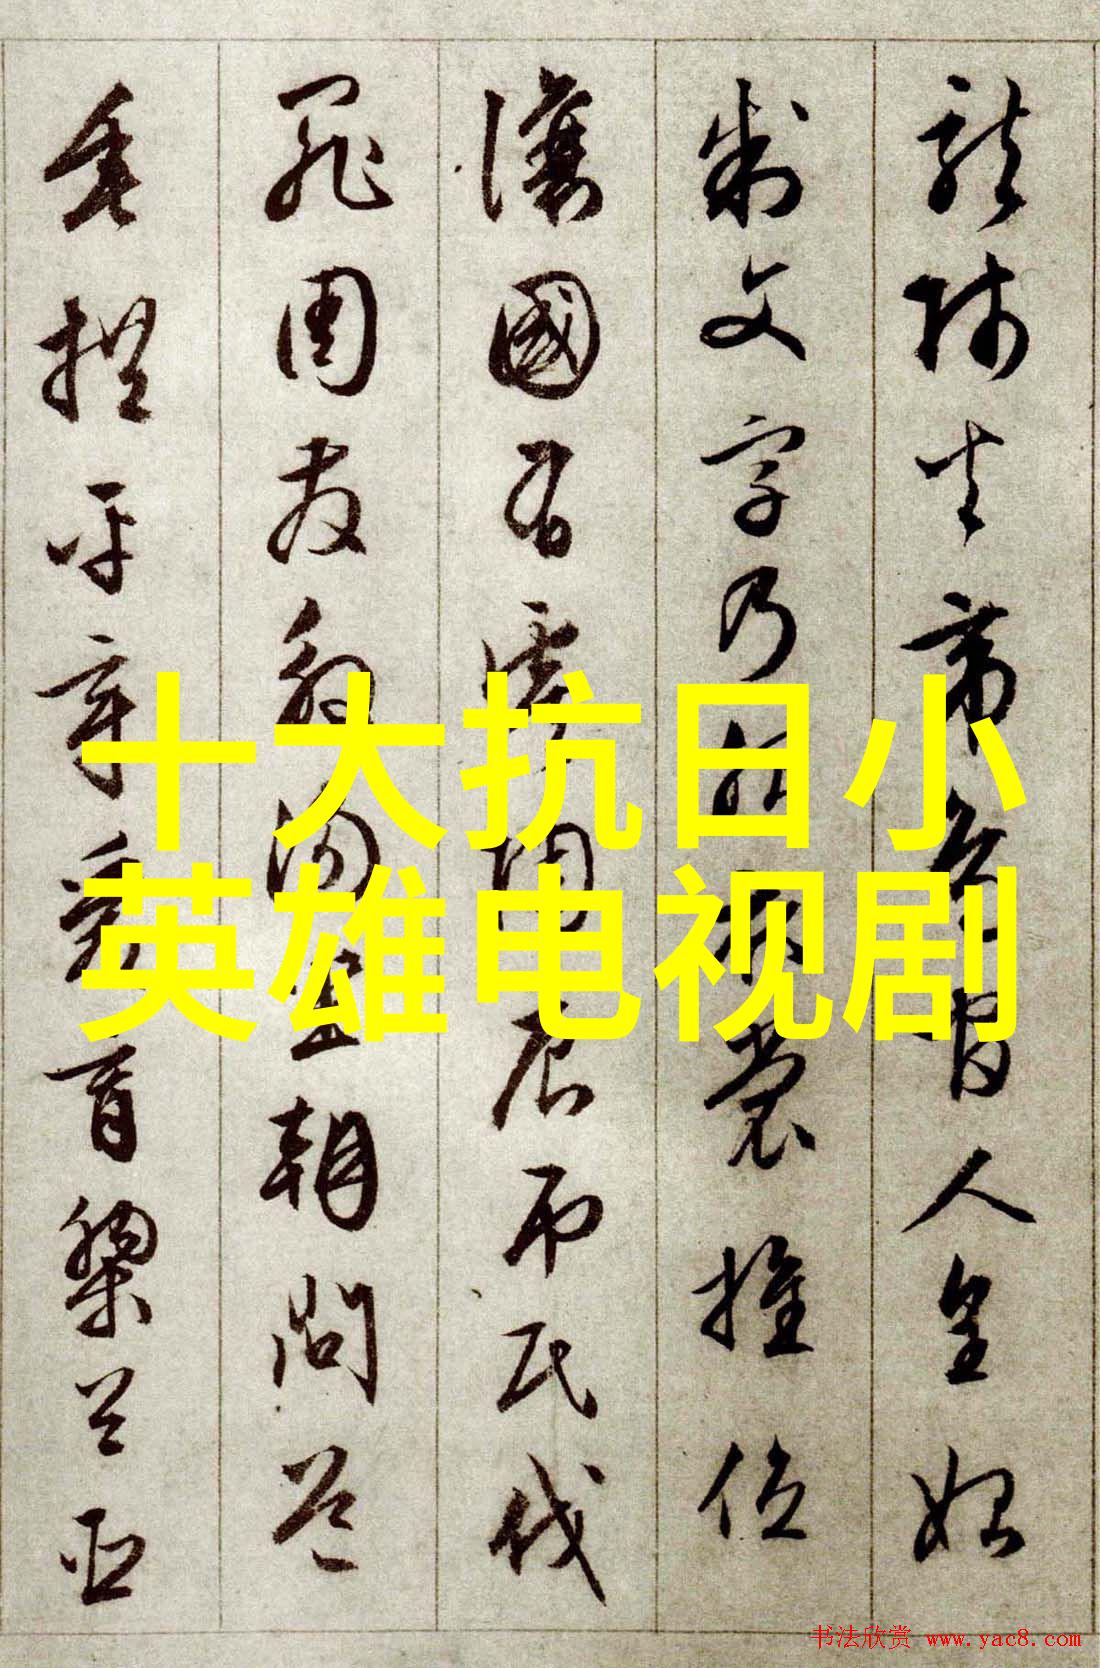 龍師火帝鳥官人皇始
制文字乃服衣裳推位
讓國有虞陶唐弔民伐
罪周發殷湯坐朝問道
垂拱平章愛育黎首臣
十大抗日小
英雄电视剧
书法欣赏 www.yac8.com